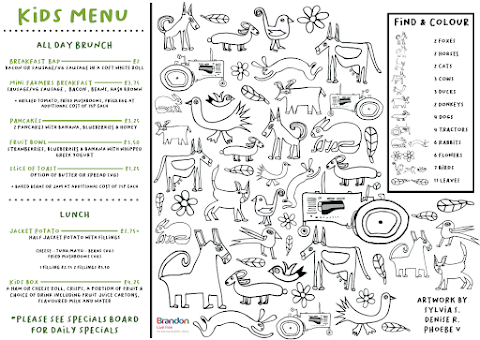 KiDS MENU
ALL DAY BRUNCH
BREAKFAST BAP
BACON OR SAUSAGE/VG SAUSAGE IN A SOFT WHITE ROLL
MINI FARMERS BREAKFAST £3.75
SAUSAGE/VG SAUSAGE, BACON, BEANS, HASH BROWN
+ GRILLED TOMATO, FRIED MUSHROOMS, FRIED EGG AT
ADDITIONAL COST OF 75P EACH
PANCAKES £3.25
2 PANCAKES WITH BANANA, BLUEBERRIES & HONEY
FRUIT BOWL £3.50
STRAWBERRIES, BLUEBERRIES & BANANA WITH WHIPPED
GREEK YOGURT
SLICE OF TOAST £1.25
OPTION OF BUTTER OR SPREAD (VG)
+ BAKED BEANS OR JAM AT ADDITIONAL COST OF 75P EACH
LUNCH
JACKET POTATO £2.75+
HALF JACKET POTATO WITH FILLINGS
CHEESE - TUNA MAYO - BEANS (VG)
FRIED MUSHROOMS (VG)
1 FILLING £2.75 2 FILLINGS £3.50
KIDS BOX £4.25
A HAM OR CHEESE ROLL, CRISPS, A PORTION OF FRUIT &
CHOICE OF DRINK INCLUDING FRUIT JUICE CARTONS,
FLAVOURED MILK AND WATER
*PLEASE SEE SPECIALS BOARD
FOR DAILY SPECIALS
FiND & COLOUR
2 FOXES
2 HORSES
2 CATS
3 COWS
3 DUCKS
2 DONKEYS
4 DOGS
4 TRACTORS
6 RABBITS
8 FLOWERS
7 BIRDS
11 LEAVES
Brandon
ARTWORK BY
SYLVIA S.
DENISE R.
PHOEBE V